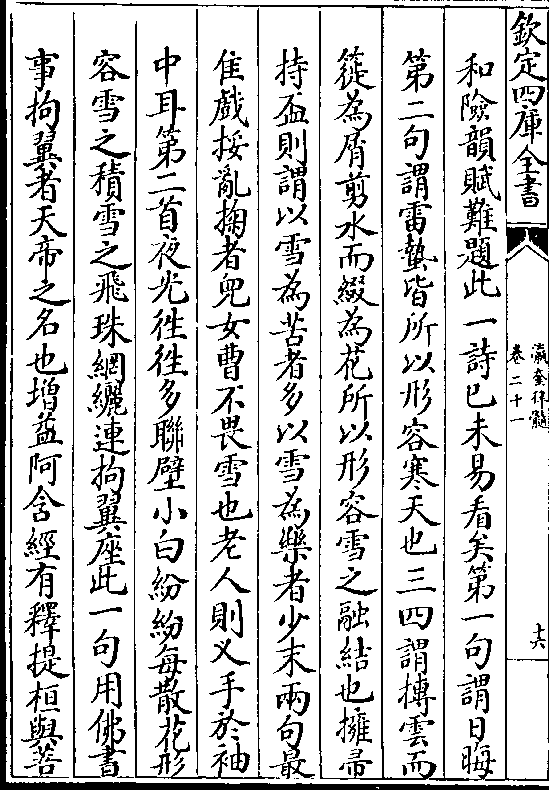 欽定四庫全書
瀛奎律髓
卷二十一
十六
和險韻賦難題此一詩已未易看矣第一句謂日晦
第二句謂雷蟄皆所以形容寒天也三四謂摶雲而
簁為屑剪水而綴為花所以形容雪之融結也擁帚
持盃則謂以雪為苦者多以雪為樂者少末兩句最
佳戲挼亂掬者兒女曹不畏雪也老人則乂手於袖
中耳第二首夜光徃徃多聯璧小白紛紛每散花形
容雪之積雪之飛珠網纚連拘翼座此一句用佛書
事拘翼者天帝之名也增益阿含經有釋提桓與菩